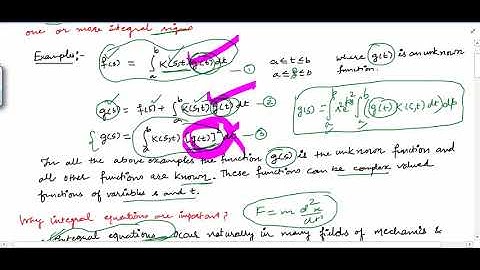 one or more integral signs
Examples:- f(s) = ∫_a^b K(s,t) g(t) dt —① a≤t≤b where g(t) is an unknown
a≤s≤b function.
g(s) = f(s) + ∫_a^b K(s,t) g(t) dt —②
g(s) = ∫_a^b K(s,t) [g(t)]² —③
In all the above examples the function g(s) is the unknown function and
all other functions are known. These functions can be complex valued
functions of variables s and t.
Why integral equations are important? F = m d²x
Integral equations occur naturally in many fields of mechanics &